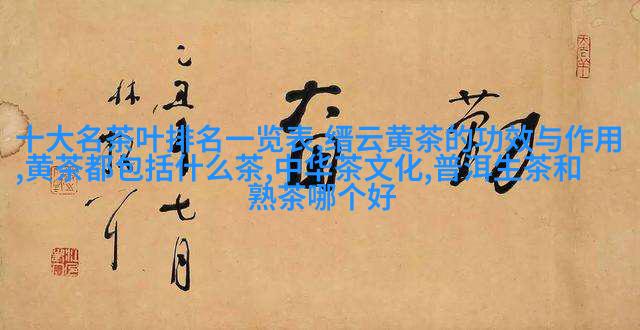 十大名茶叶排名一览表,缙云黄茶的功效与作用
,黄茶都包括什么茶,中华茶文化,普洱生茶和
熟茶哪个好
勤奋
乙丑年七月
林散